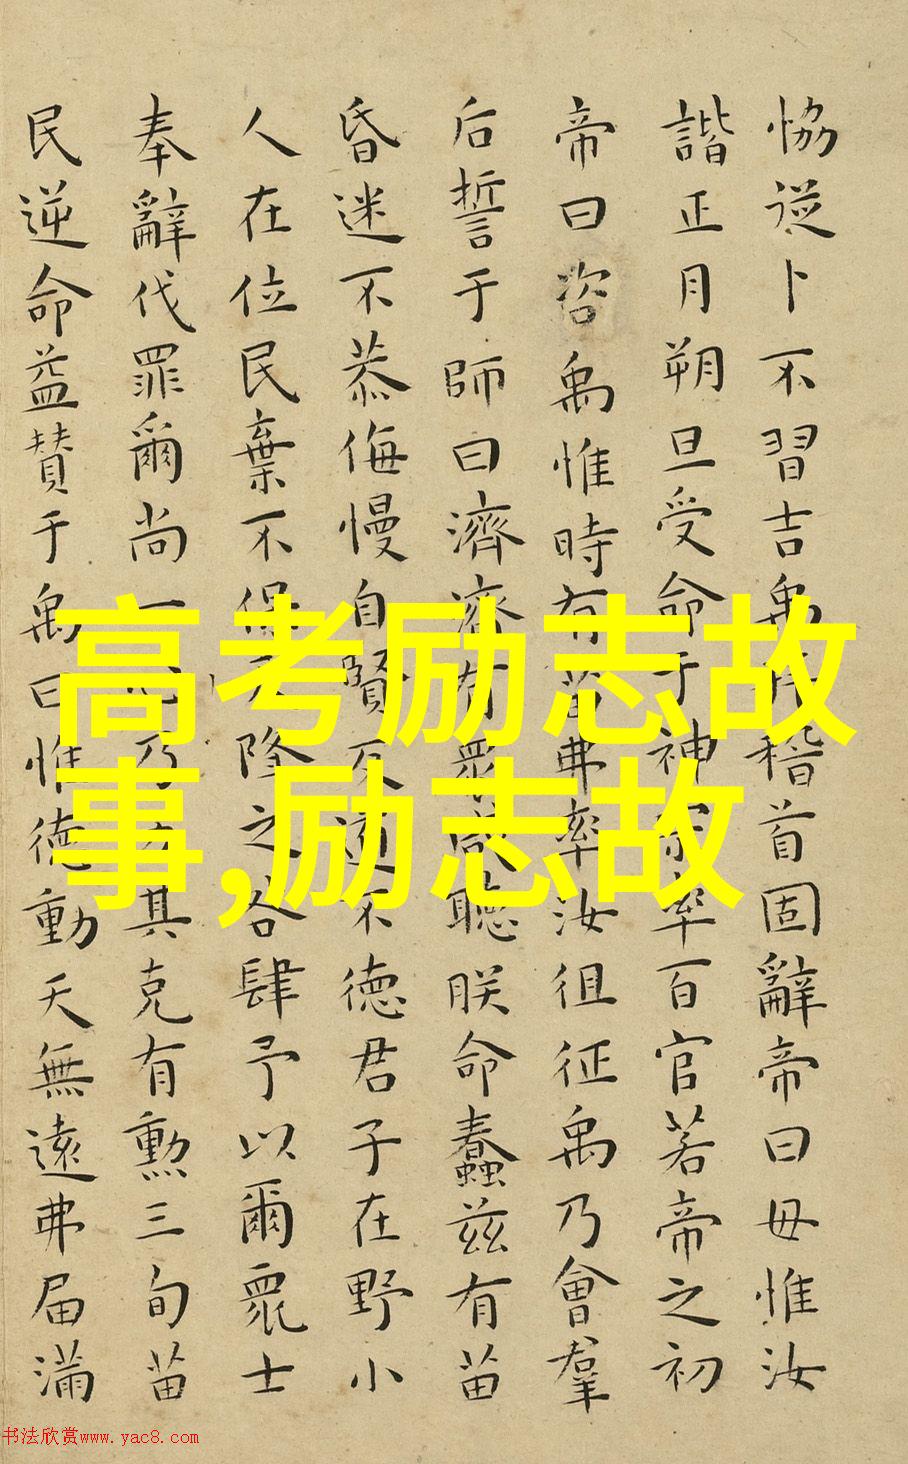 恊従卜不習吉禹拜稽首固辭帝曰毋惟汝
諧正月朔旦受命于神宗率百官若帝之初
帝曰咨禹惟時有苗弗率汝徂征禹乃會羣
后誓于師曰濟濟有衆咸聽朕命蠢茲有苗
昏迷不恭侮慢自賢反道不徳君子在野小
人在位民棄不保天降之咎肆予以爾眾士
奉辭伐罪爾尚一心乃力其克有勲三旬苗
民逆命益贊于禹曰惟徳動天無遠弗届滿
高考励志故
事,励志故
书法欣赏www.yac8.com